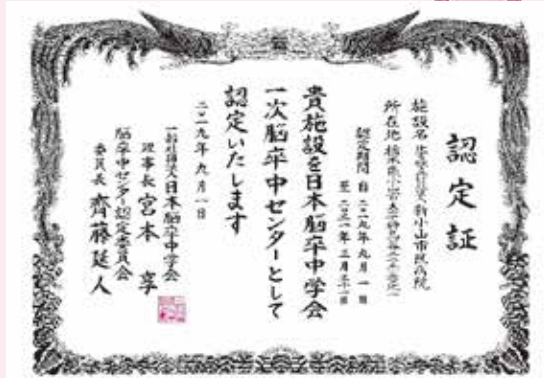 認定証
施設名 新小山市民病院
所在地 栃木県小山市
認定期間 自 二〇一九年九月一日
至 二〇二一年三月三十一日
貴施設を日本脳卒中学会
一次脳卒中センターとして
認定いたします
二〇一九年九月一日
一般社団法人日本脳卒中学会
理事長 宮本 享
脳卒中センター認定委員会
委員長 齊藤延人